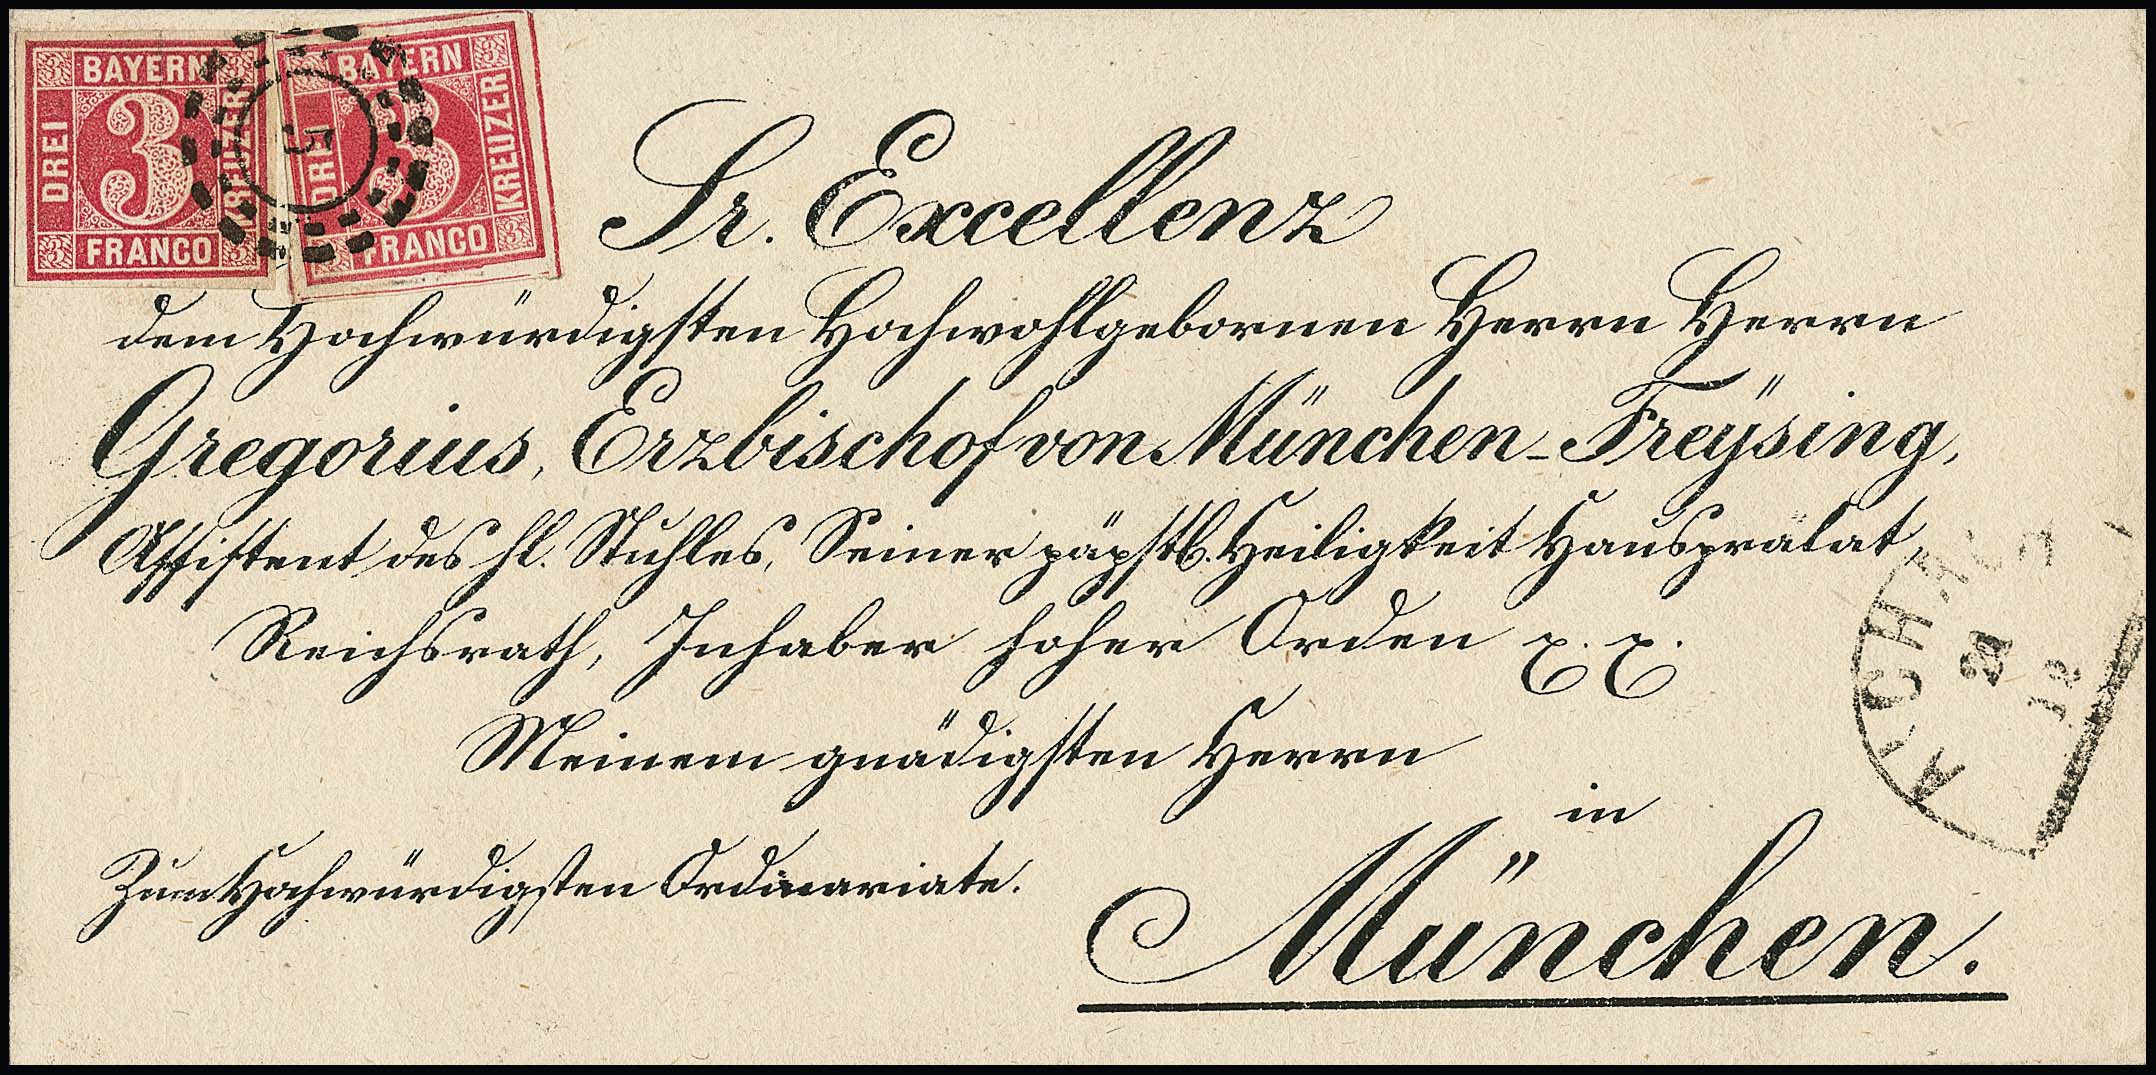 BAYERN
DREI 3 KREUZER
FRANCO
BAYERN
DREI 3 KREUZER
FRANCO
5
Sr. Excellenz
dem Hochwürdigsten Hochwohlgebornen Herrn Herrn
Gregorius, Erzbischof von München-Freÿsing,
Assistent des hl. Stuhles, Seiner päpstl. Heiligkeit Hausprälat,
Reichsrath, Inhaber hoher Orden
Meinem gnädigsten Herrn
in
Zum Hochwürdigsten Ordinariate.
München.
AICHACH
21
12